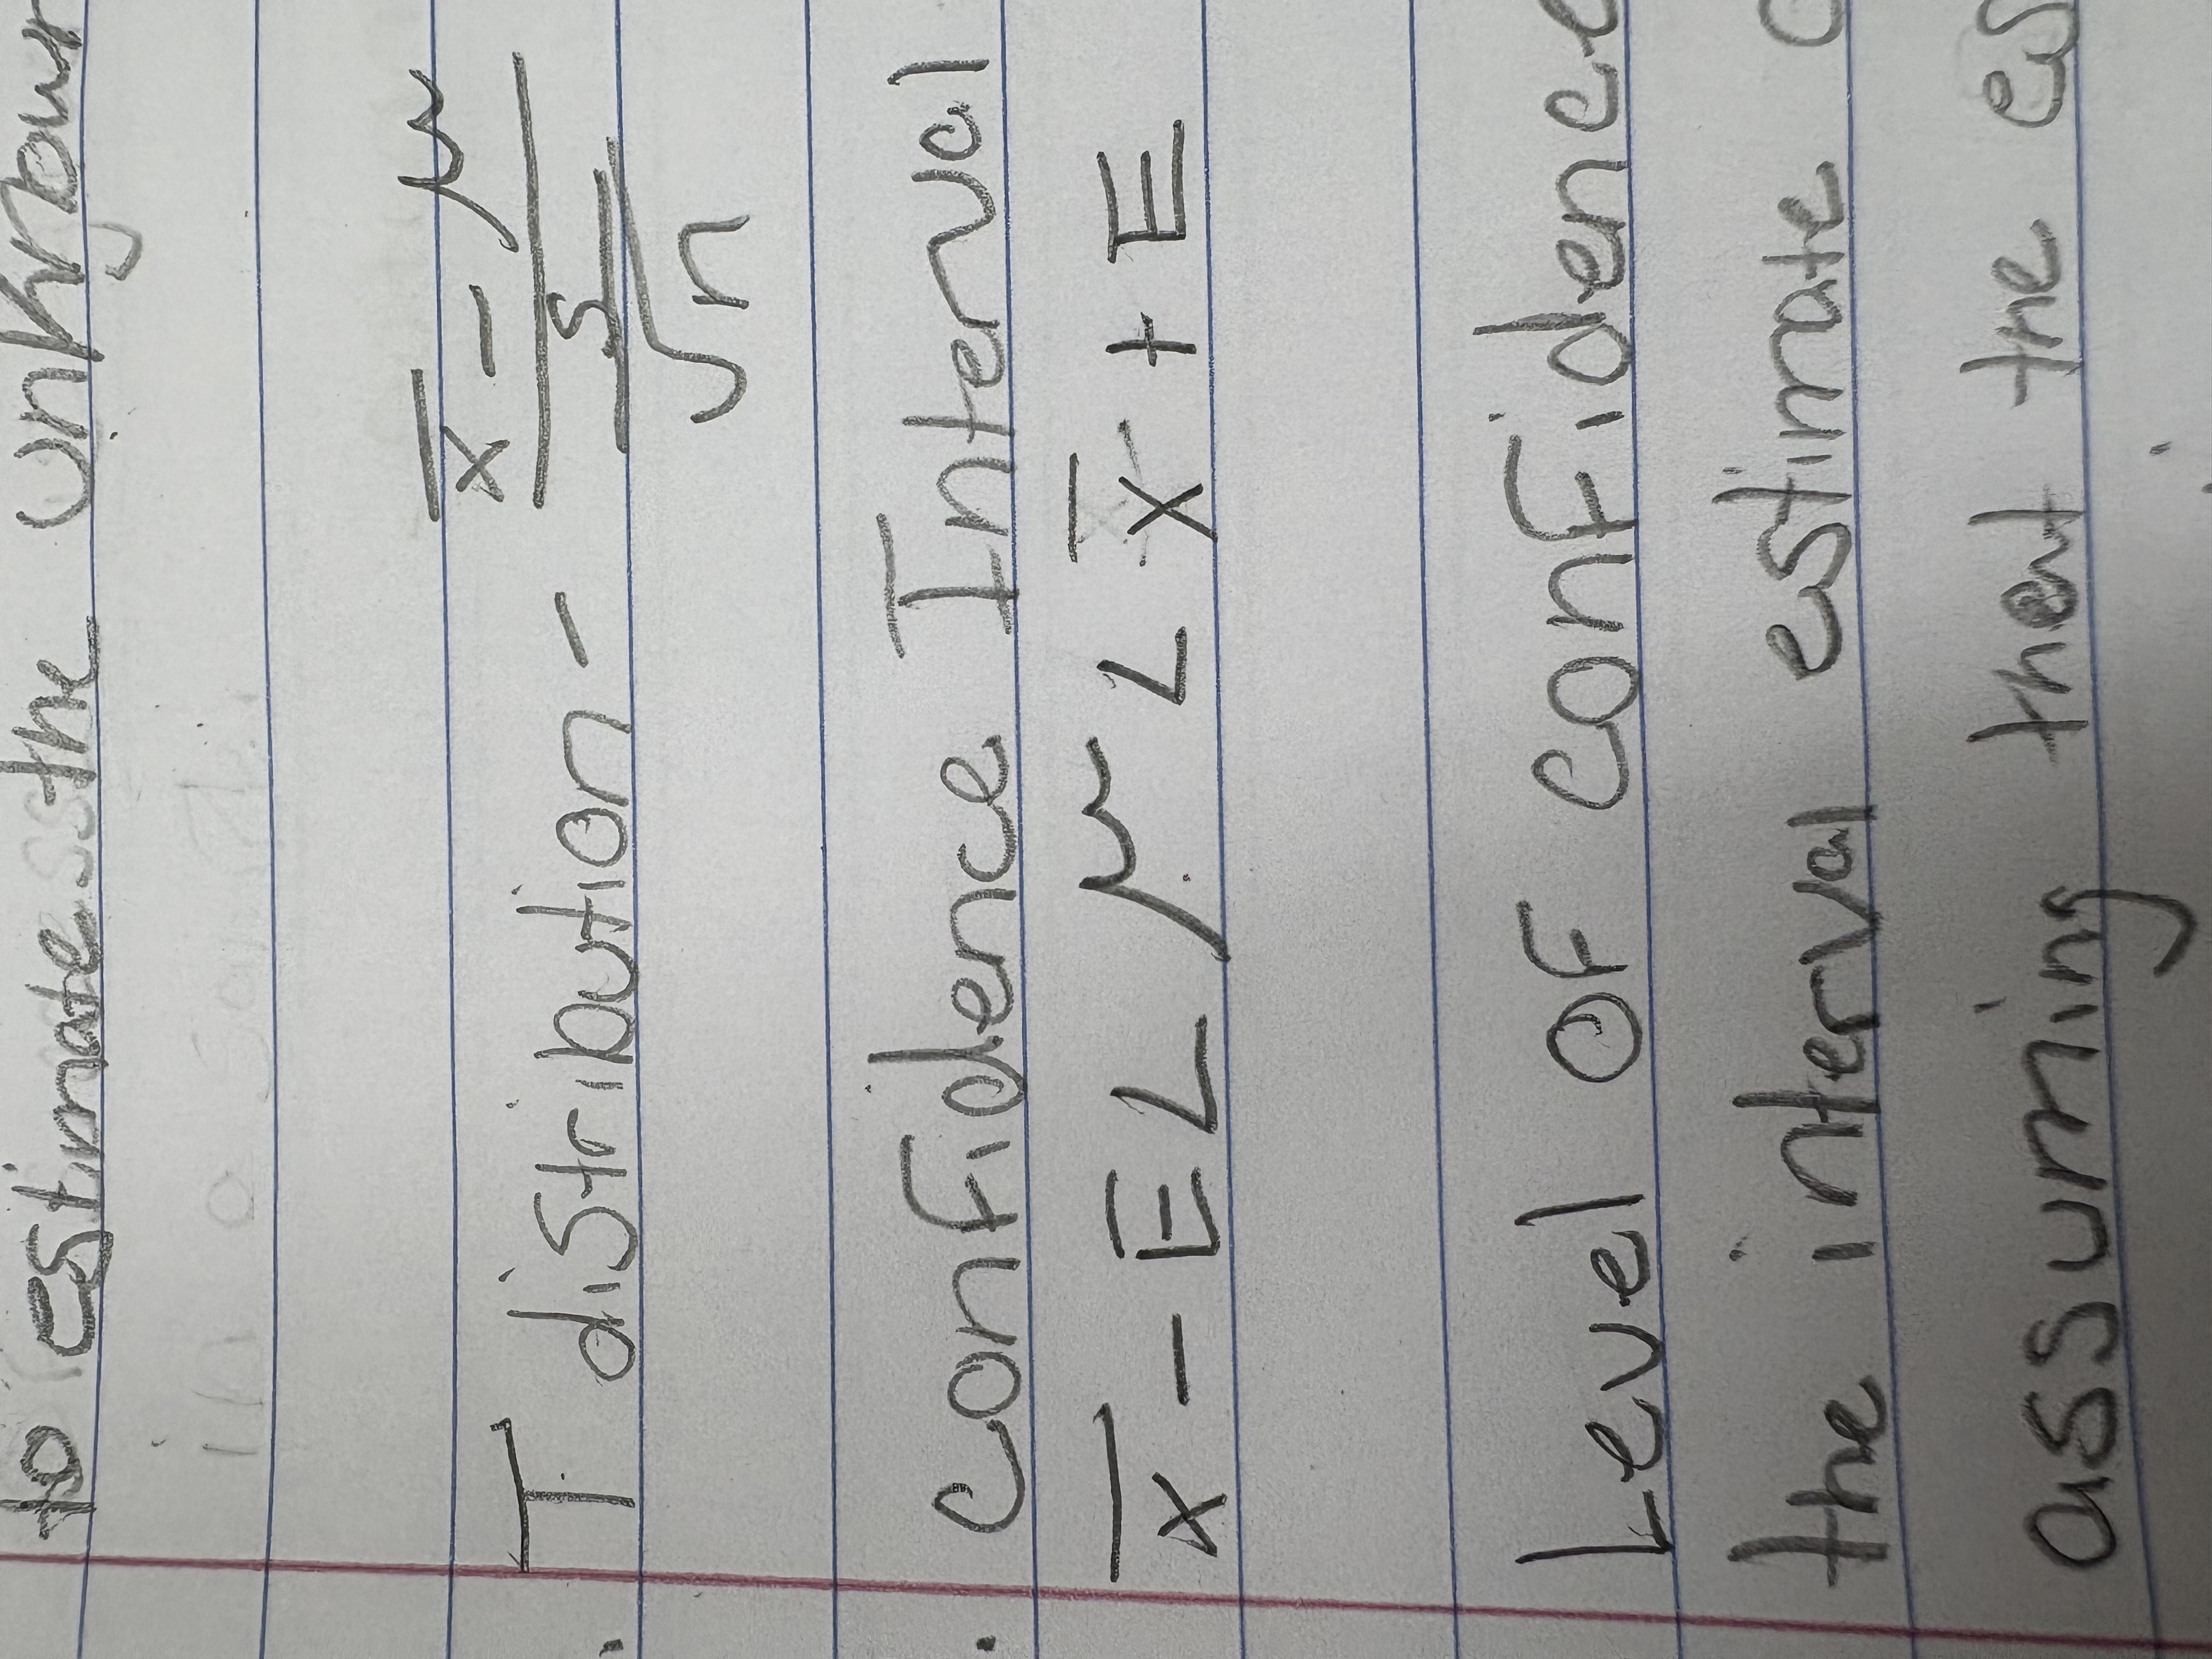 to estimate the unknown
· T distribution - x̄ - μ / s / √n
· Confidence Interval
x̄ - E < μ < x̄ + E
Level of confidence
the interval estimate
assuming that the es